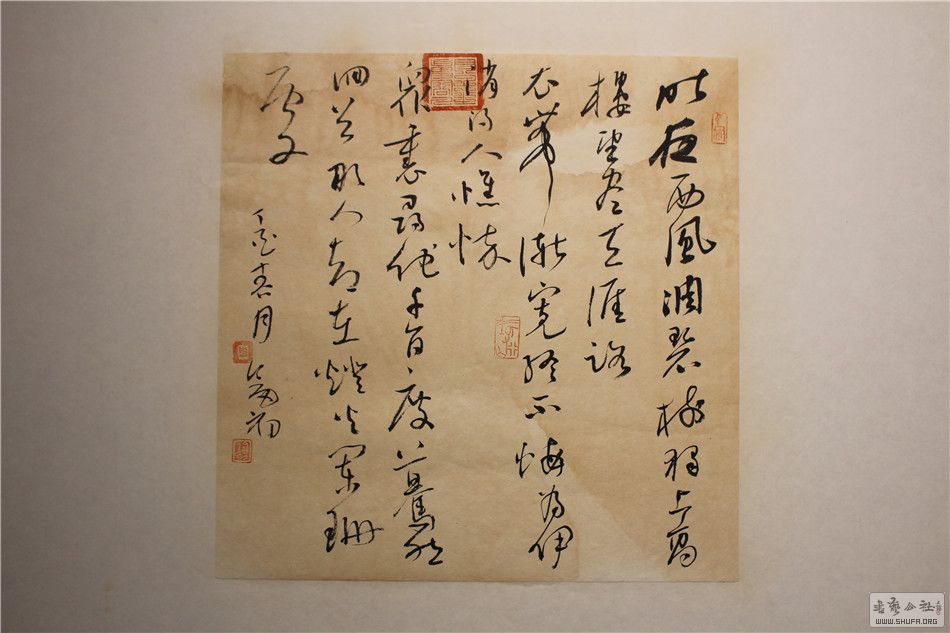 昨夜西風凋碧樹獨上高
樓望盡天涯路
衣帶漸寬終不悔為伊
消得人憔悴
眾裏尋他千百度驀然
回首那人卻在燈火闌珊
處
春月
書藝公社
WWW.SHUFA.ORG